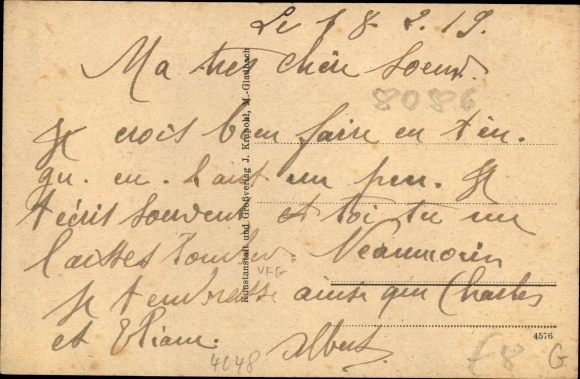 Le 18.2.19.
Ma tres chère Soeur.
8086
Je crois bien faire en t'en.
un peu. Je
t'écrit souvent et toi tu me
laisses tomber. Neanmoin
VFG
Je t'embrasse ainsi que Charles
et Eliane.
Albert.
4048
4576
£8
G
Kunstanstalt und Großverlag J. Krapohl, M.-Gladbach